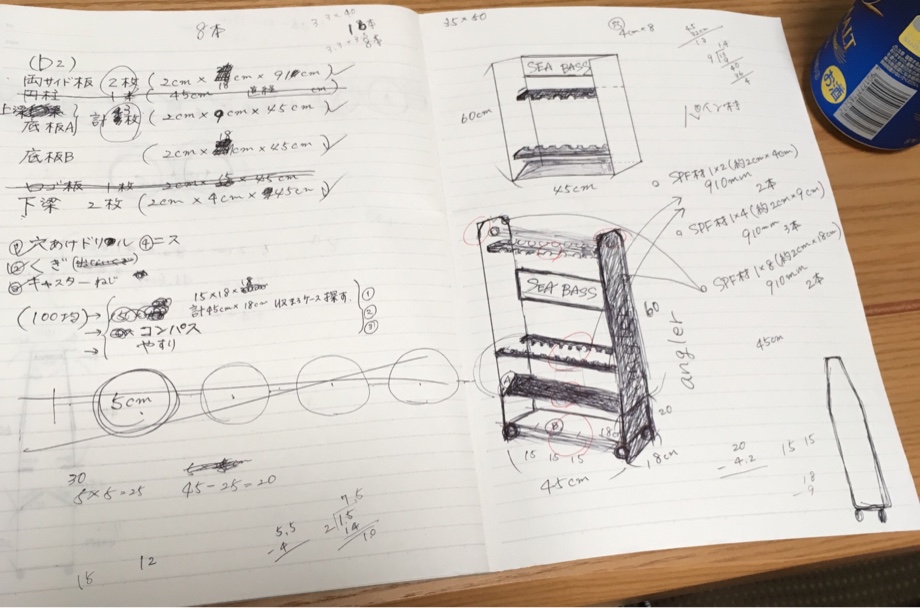 8本
3.3×40
1本
8本
(D2)
両サイド板 2枚 (2cm×18cm×91cm)
円柱 1本 45cm 直径 cm
上梁
底板A 計 枚 (2cm×9cm×45cm)
底板B (2cm×18cm×45cm)
ロゴ板 1枚 2cm× ×45cm
下梁 2枚 (2cm×4cm×45cm)
①穴あけドリル ④ニス
②くぎ
③キャスター ねじ
(100均)→
15×18×
計45cm×18cm 収まるケース探す ①
→ コンパス ②
→ やすり ③
5cm
30
5×5=25
45-25=20
5.5
-4
7.5
2 15
14
10
15
12
35×60
穴
4cm×8
45
32cm
13
14
9
SEA BASS
60cm
45cm
ペイント材
○ SPF材1×2(約2cm×4cm)
910mm
2本
○ SPF材1×4(約2cm×9cm)
910mm 3本
○ SPF材1×8(約2cm×18cm)
910mm
2本
SEA BASS
60
angler
A
B
20
18c
15 15 15
18cm
45cm
45cm
20
-4.2
15 15
18
-9
お酒